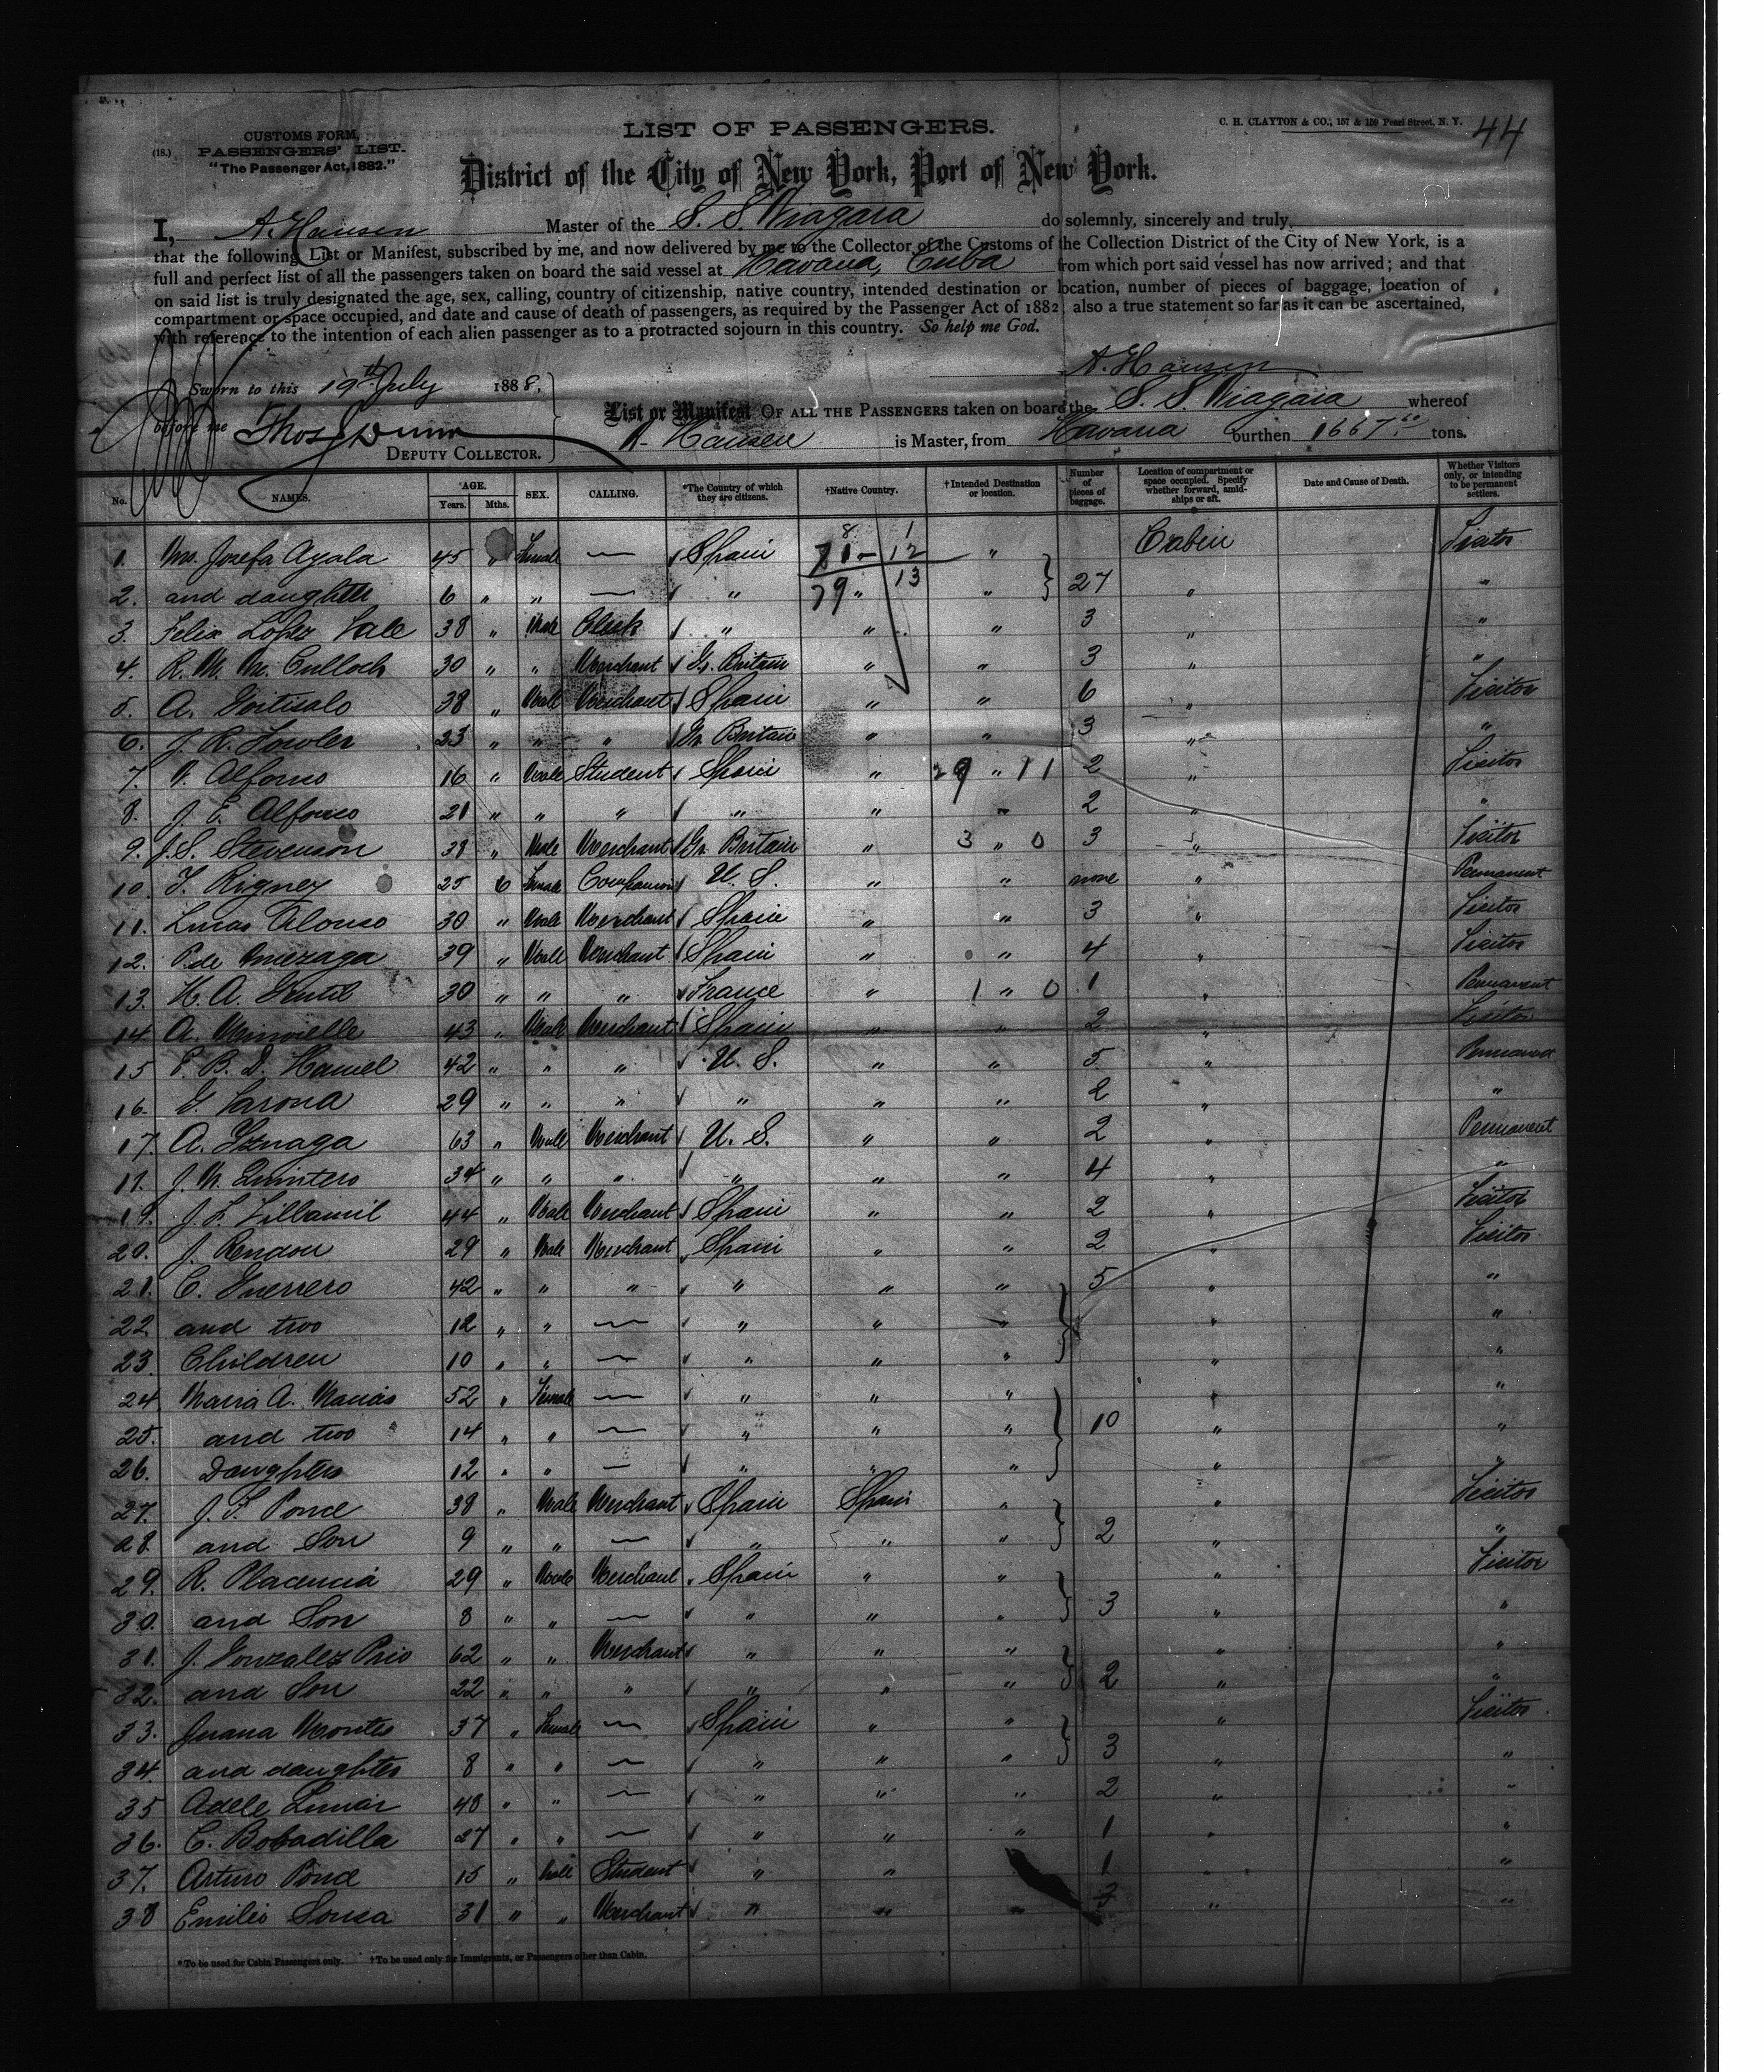 44
CUSTOMS FORM,
(18.) PASSENGERS' LIST.
"The Passenger Act, 1882."
LIST OF PASSENGERS.
C. H. CLAYTON & CO., 157 & 159 Pearl Street, N. Y.
District of the City of New York, Port of New York.
I, A. Hansen Master of the S. S. Niagara do solemnly, sincerely and truly,
that the following List or Manifest, subscribed by me, and now delivered by me to the Collector of the Customs of the Collection District of the City of New York, is a
full and perfect list of all the passengers taken on board the said vessel at Havana, Cuba from which port said vessel has now arrived; and that
on said list is truly designated the age, sex, calling, country of citizenship, native country, intended destination or location, number of pieces of baggage, location of
compartment or space occupied, and date and cause of death of passengers, as required by the Passenger Act of 1882; also a true statement so far as it can be ascertained,
with reference to the intention of each alien passenger as to a protracted sojourn in this country. So help me God.
A. Hansen
Sworn to this 19th July 1888.
before me Thos. J. Dunn
DEPUTY COLLECTOR.
List or Manifest OF ALL THE PASSENGERS taken on board the S. S. Niagara whereof
A. Hansen is Master, from Havana burthen 1667 tons.
No. NAMES. AGE. Years. Mths. SEX. CALLING. *The Country of which they are citizens. †Native Country. †Intended Destination or location. Number of pieces of baggage. Location of compartment or space occupied. Specify whether forward, amidships or aft. Date and Cause of Death. Whether Visitors only, or intending to be permanent settlers.
1. Mrs. Josefa Ayala 45 " Female — Spain " Cabin Visitor
2. and daughter 6 " " — " " " 27 " "
3. Felix Lopez Vale 38 " Male Clerk " " " 3 " "
4. R. M. Mc Culloch 30 " " Merchant Gr. Britain " " 3 " "
5. A. Goitisolo 38 " Male Merchant Spain " " 6 " Visitor
6. J. R. Fowler 23 " " " Gr. Britain " " 3 " "
7. V. Alfonso 16 " Male Student Spain " 29 " 11 2 " Visitor
8. J. E. Alfonso 21 " " " " " " 2 " "
9. J. S. Stevenson 38 " Male Merchant Gr. Britain " 3 " 0 3 " Visitor
10. T. Rigney 25 6 Female Companion U. S. " " none " Permanent
11. Lucas Alonso 30 " Male Merchant Spain " " 3 " Visitor
12. P. de 39 " Male Merchant Spain " " 4 " Visitor
13. H. A. Gentil 30 " " " France " 1 " 0 1 " Permanent
14. A. 43 " Male Merchant Spain " " 2 " Visitor
15 P. B. D. Hamel 42 " " " U. S. " " 5 " Permanent
16. G. Varona 29 " " " " " " 2 " "
17. A. Iznaga 63 " Male Merchant U. S. " " 2 " Permanent
18. J. M. Quintero 34 " " " " " " 4 " "
19. J. F. Villamil 44 " Male Merchant Spain " " 2 " Visitor
20. J. Rendon 29 " Male Merchant Spain " " 2 " Visitor
21. C. Guerrero 42 " " " " " " 5 " "
22 and two 12 " " — " " " " "
23 Children 10 " " — " " " " "
24 Maria A. Macias 52 " Female — " " " " "
25. and two 14 " " — " " " 10 " "
26. Daughters 12 " " — " " " " "
27. J. F. Ponce 38 " Male Merchant Spain Spain " " Visitor
28. and Son 9 " " — " " " 2 " "
29. R. Placencia 29 " Male Merchant Spain " " " Visitor
30. and Son 8 " " — " " " 3 " "
31. J. Gonzalez Prio 62 " " Merchant " " " " "
32. and Son 22 " " " " " " 2 " "
33. Juana Montes 37 " Female — Spain " " " Visitor
34. and daughter 8 " " — " " " 3 " "
35 Adele 48 " " — " " " 2 " "
36. C. Bobadilla 27 " " — " " " 1 " "
37. Arturo Pond 15 " Male Student " " 1 " "
38 Emilio Sousa 31 " " Merchant " " " " "
*To be used for Cabin Passengers only. †To be used only for Immigrants, or Passengers other than Cabin.